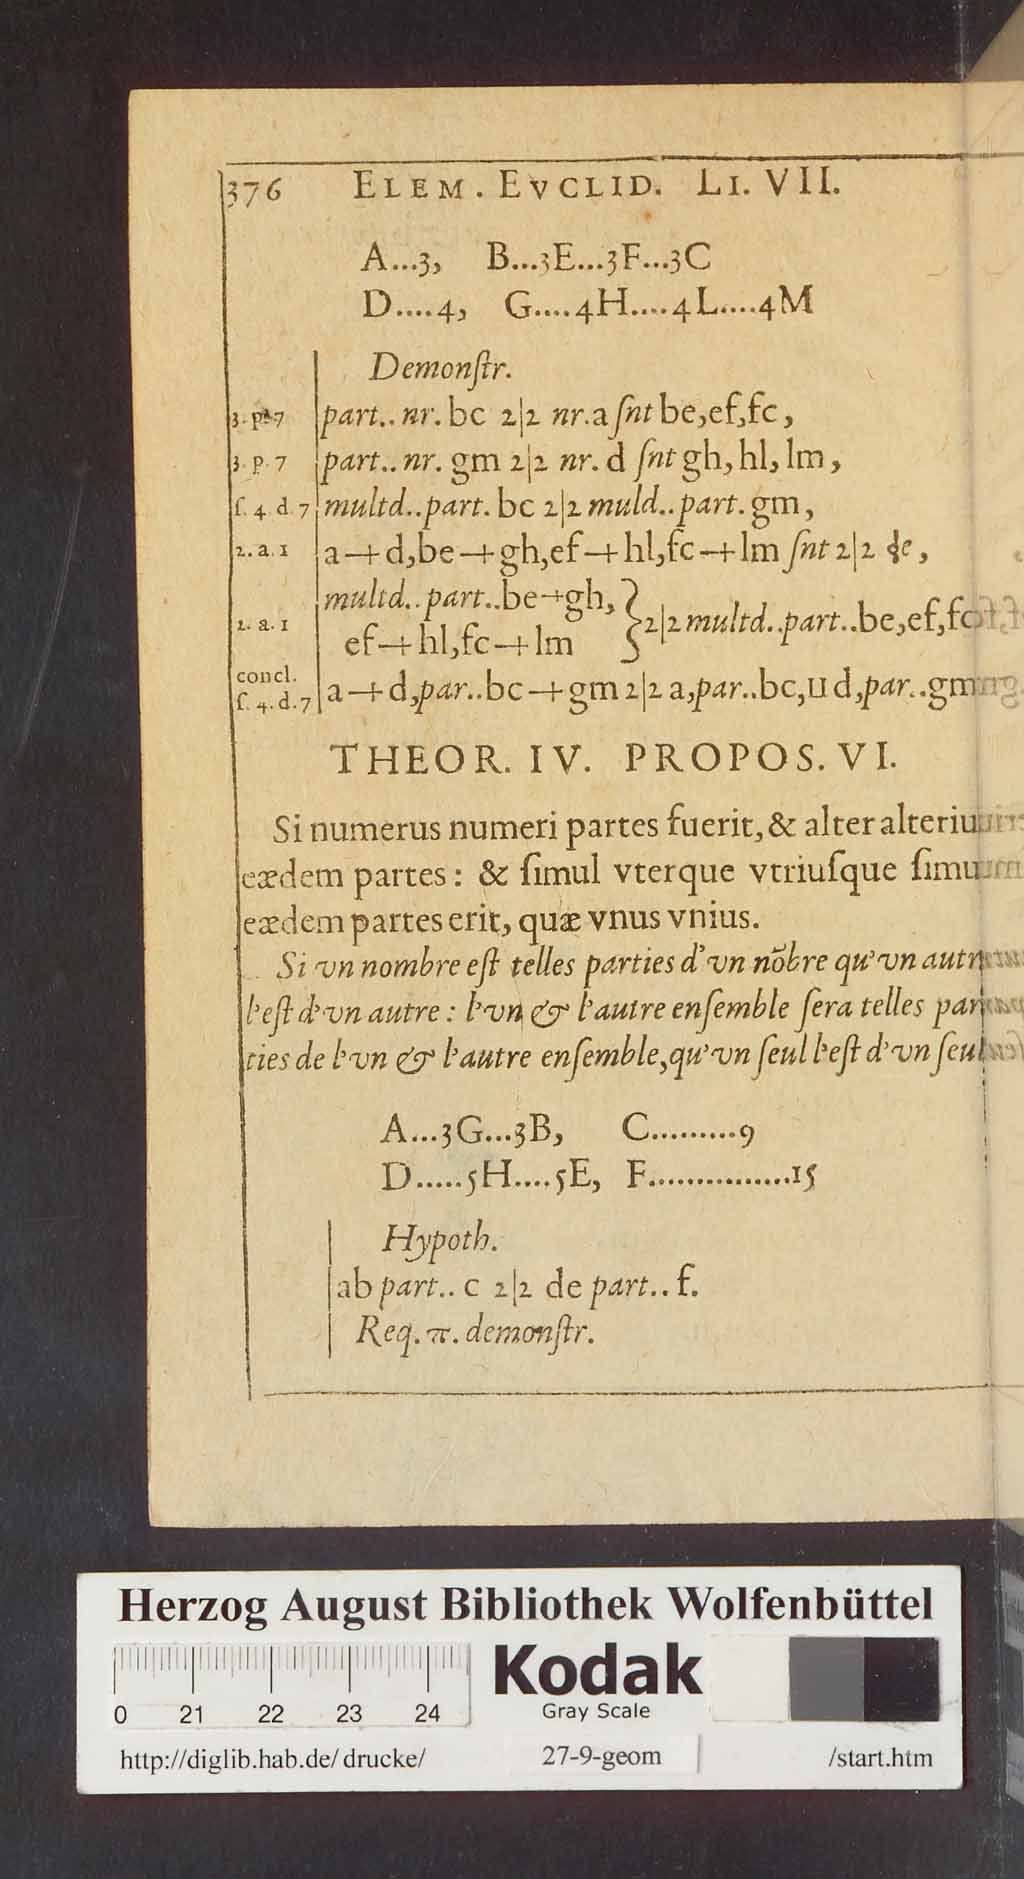 376 ELEM. EVCLID. LI. VII.
A...3, B...3E...3F...3C
D....4, G....4H....4L....4M
Demonſtr.
3. p. 7 part.. nr. bc 2|2 nr. a ſnt be, ef, fc,
3. p. 7 part.. nr. gm 2|2 nr. d ſnt gh, hl, lm,
f. 4. d. 7 multd..part. bc 2|2 muld..part. gm,
2. a. 1 a+d, be+gh, ef+hl, fc+lm ſnt 2|2 de,
multd..part..be+gh,
2. a. 1 ef+hl, fc+lm } 2|2 multd..part..be, ef, fc
concl.
f. 4. d. 7 a+d, par..bc+gm 2|2 a, par..bc, U d, par..gm
THEOR. IV. PROPOS. VI.
Si numerus numeri partes fuerit, & alter alteriu
eædem partes: & ſimul vterque vtriuſque ſimu
eædem partes erit, quæ vnus vnius.
Si vn nombre eſt telles parties d'vn nõbre qu'vn autr
l'eſt d'vn autre: l'vn & l'autre enſemble ſera telles par
ties de l'vn & l'autre enſemble, qu'vn ſeul l'eſt d'vn ſeul
A...3G...3B, C.........9
D.....5H....5E, F...............15
Hypoth.
ab part.. c 2|2 de part.. f.
Req. π. demonſtr.
Herzog August Bibliothek Wolfenbüttel
Kodak
Gray Scale
0 21 22 23 24
http://diglib.hab.de/drucke/ 27-9-geom /start.htm